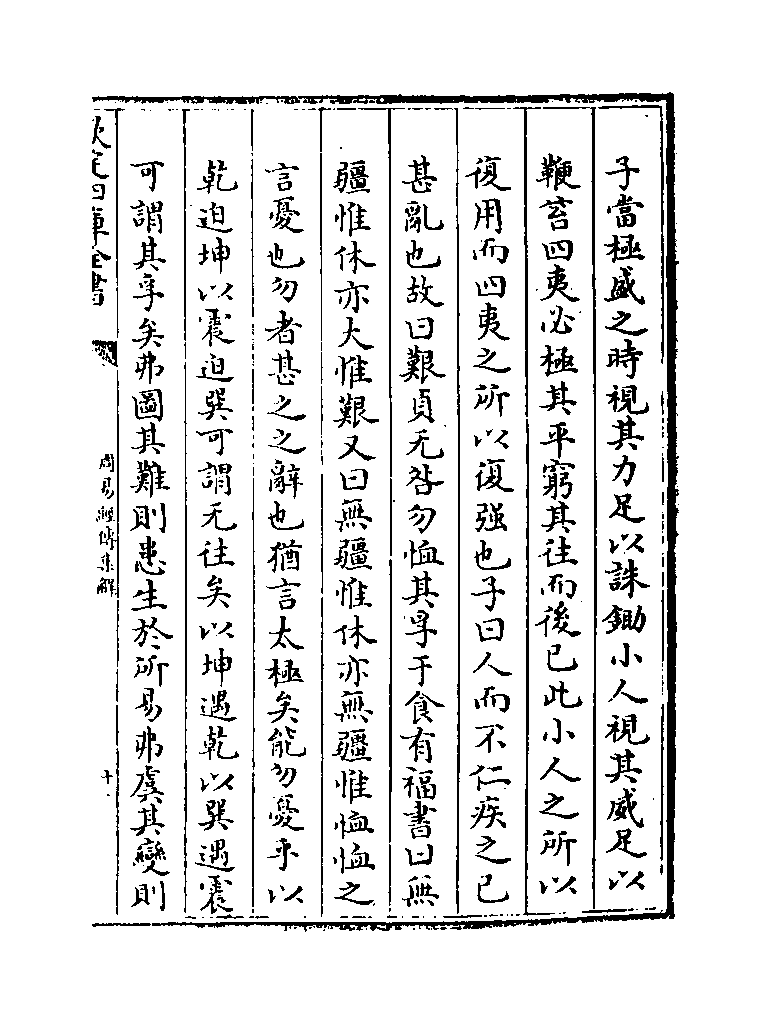 子當極盛之時視其力足以誅鋤小人視其威足以
鞭笞四夷必極其平窮其往而後已此小人之所以
復用而四夷之所以復强也子曰人而不仁疾之已
甚亂也故曰艱貞无咎勿恤其孚于食有福書曰無
疆惟休亦大惟艱又曰無疆惟休亦無疆惟恤恤之
言憂也勿者甚之之辭也猶言太極矣能勿憂乎以
乾迫坤以震迫巽可謂无往矣以坤遇乾以巽遇震
可謂其孚矣弗圖其難則患生於所易弗虞其變則
欽定四庫全書
周易經傳集解
十一